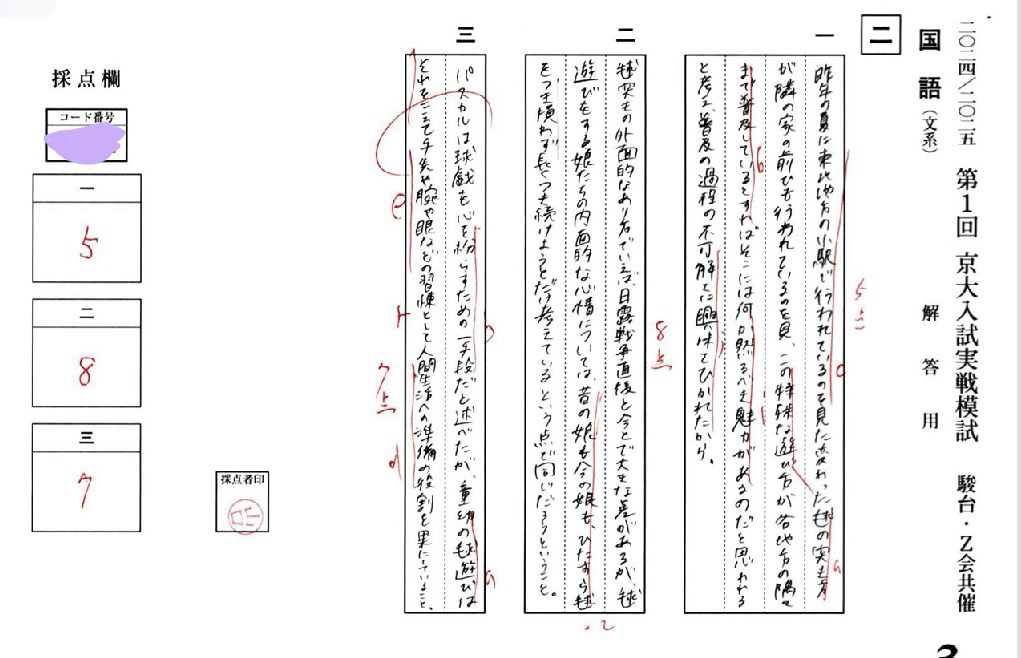 二〇二四/二〇二五 第1回 京大入試実戦模試 駿台・Z会共催
国語(文系) 解答用
二
一
昨年の夏に東北地方の小駅で行われているのを見た変わった毬の突き方
が隣の家の前でも行われているのを見、この特殊な遊び方が各地方の隅々
まで普及しているとすればそこには何か然るべき魅力があるのだと思われる
と考え、普及の過程の不可解さに興味をひかれたから。
5点
c
a
b
二
毬突きの外面的なあり方でいえば、日露戦争直後と今とで大きな差があるが、毬
遊びをする娘たちの内面的な心情については、昔の娘も今の娘も、ひたすら毬
をつき損わず長くつき続けようとだけ考えているという点で同じだろうということ。
8点
三
パスカルは球戯も心を紛らすための一手段だと述べたが、童幼の毬遊びは
それをこえて手先や腕や眼などの習練として人間生活への準備の役割を果たしていること。
7点
b
a
e
d
採点欄
コード番号
一
5
二
8
三
7
採点者印
3